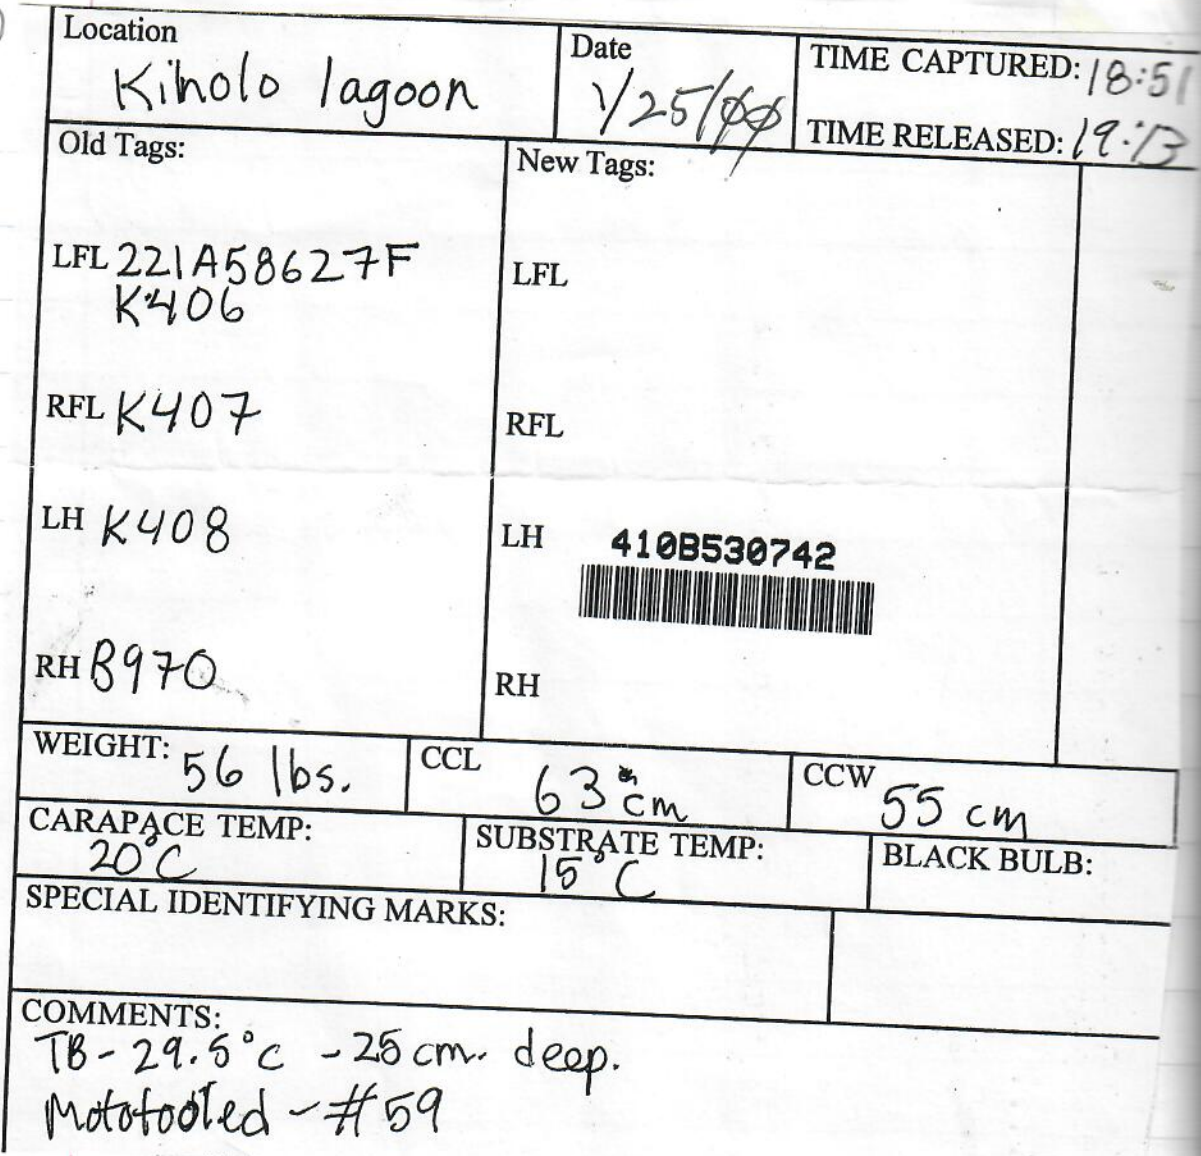 Location
Kiholo lagoon
Date
1/25/00
TIME CAPTURED: 18:51
TIME RELEASED: 19:13
Old Tags:
New Tags:
LFL 221A58627F
K406
LFL
RFL K407
RFL
LH K408
LH 410B530742
RH B970
RH
WEIGHT: 56 lbs.
CCL 63 cm
CCW 55 cm
CARAPACE TEMP:
20°C
SUBSTRATE TEMP:
15°C
BLACK BULB:
SPECIAL IDENTIFYING MARKS:
COMMENTS:
TB - 29.5°C - 25 cm. deep.
Mototooled - #59